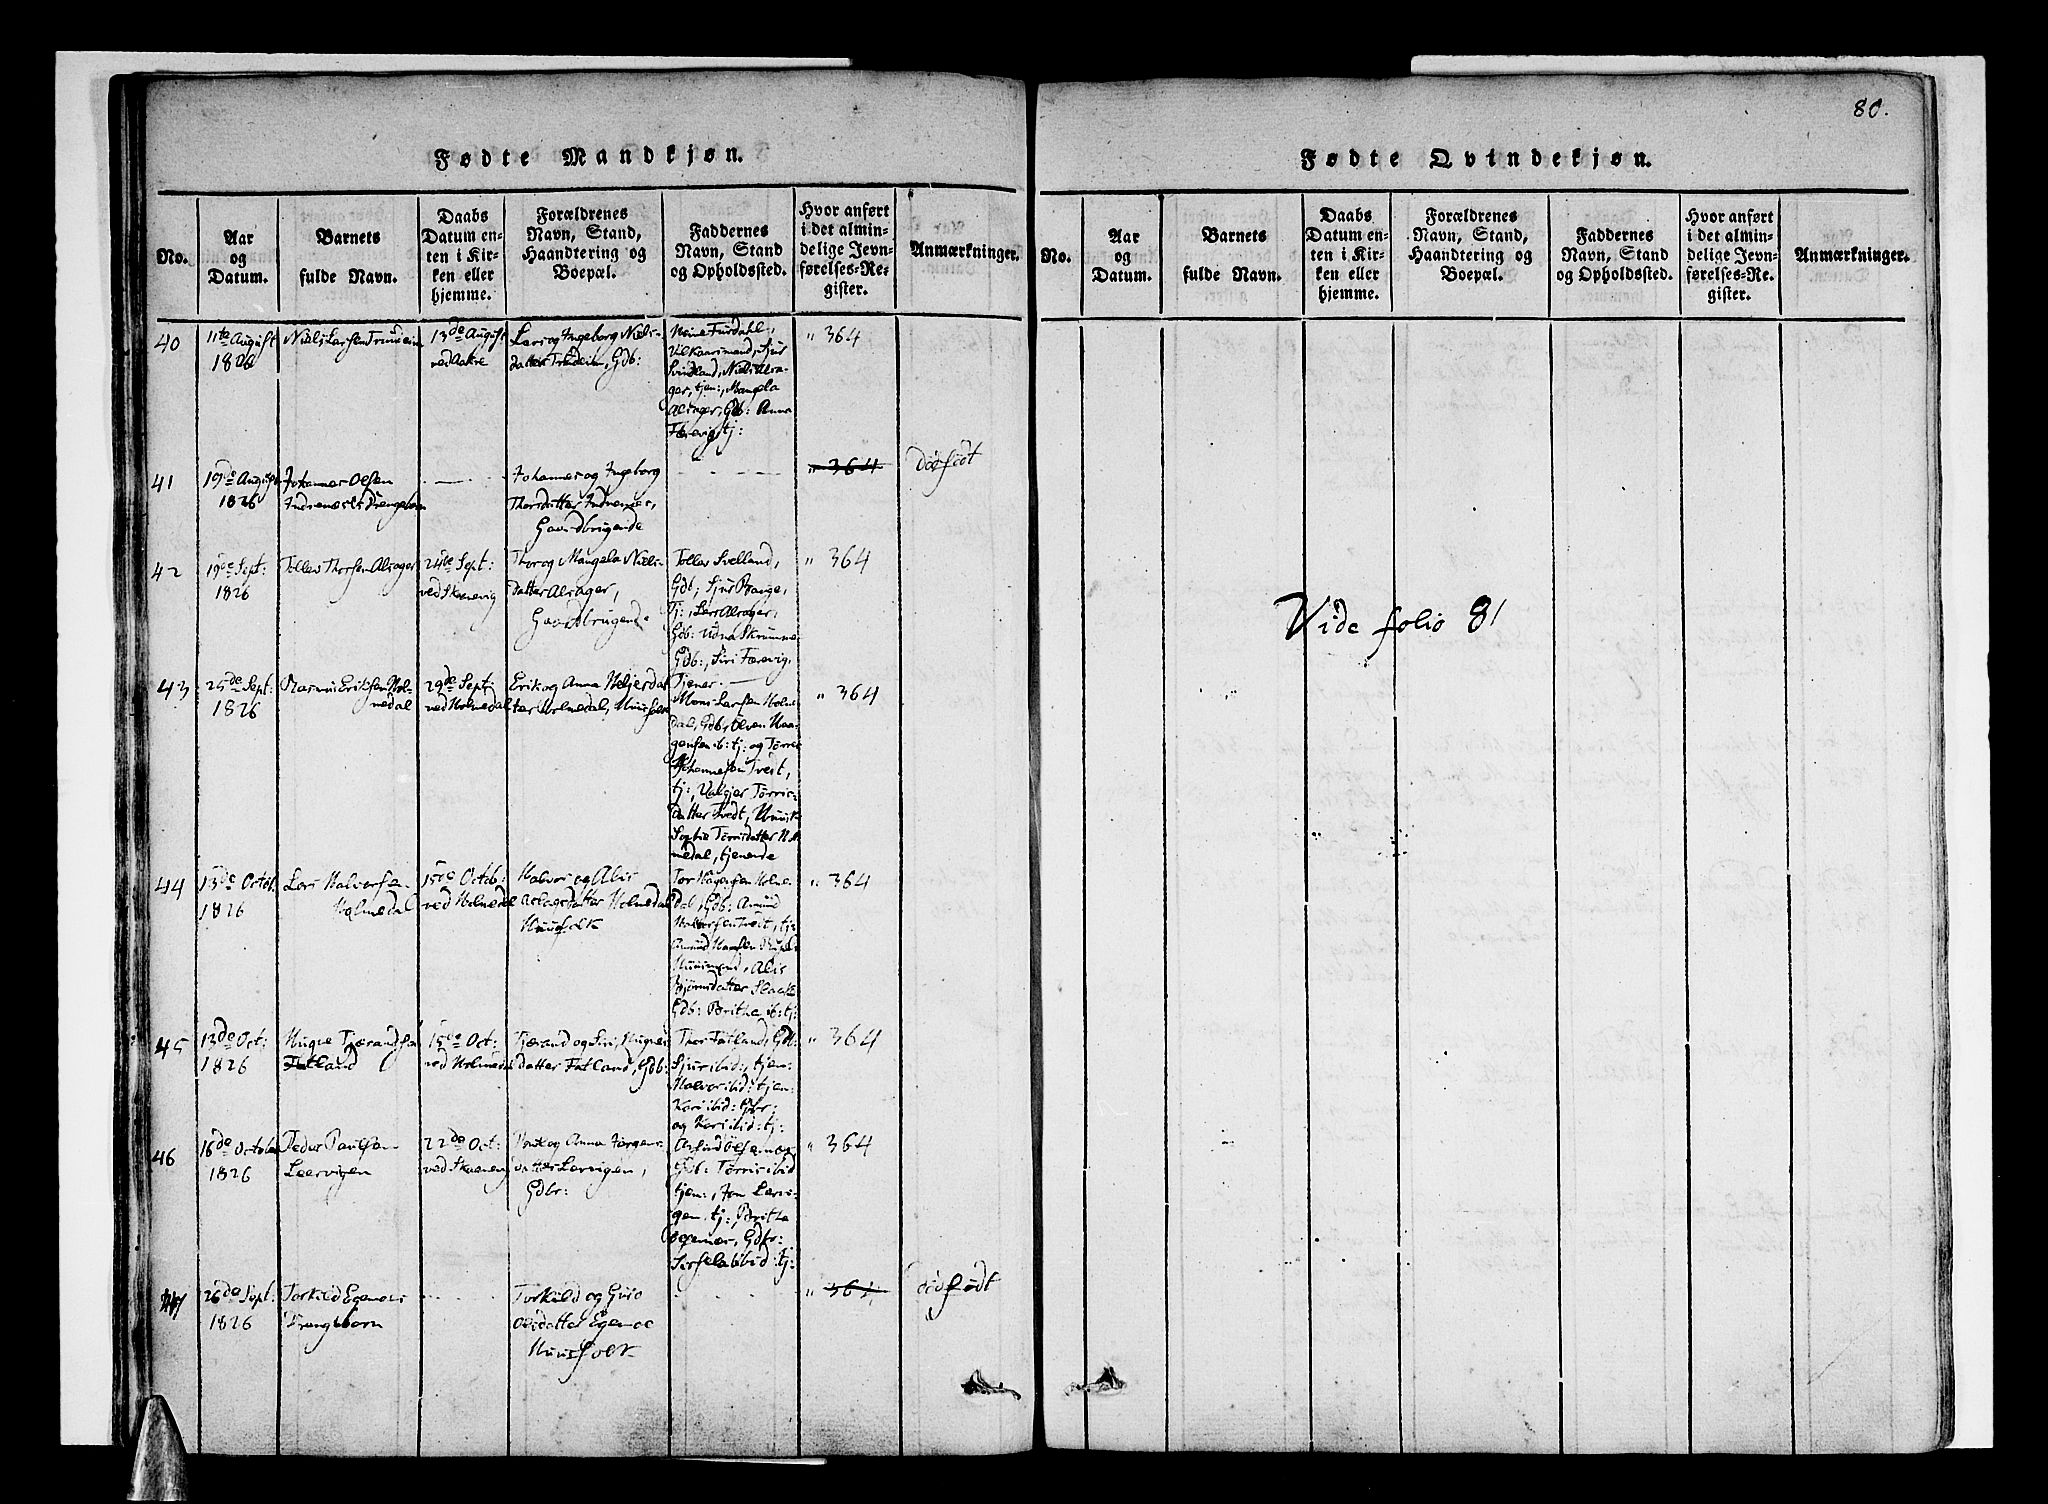 80.
Fødte Mandkjøn.
No.
Aar
og
Datum.
Barnets
fulde Navn.
Daabs
Datum en-
ten i Kir-
ken eller
hjemme.
Forældrenes
Navn, Stand,
Haandtering og
Boepæl.
Faddernes
Navn, Stand
og Opholdssted.
Hvor anført
i det almin-
delige Jevn-
førelses-Re-
gister.
Anmærkninger.
40
11te August
1826
Niels Larsen
13de August
ved Aakre
Lars og Ingeborg Niels-
datter Gdb:
Svindland, Niels Alsa-
ger, tjen:, Mangela
Alsager, Gdb: Anna
Færevig, tj:
" 364
41
19de August
1826
Johannes Olsen
Indrenæs Drengebarn
Johannes og Ingeborg
Thorsdatter Indrenæs,
Gaardbrugende
" 364
dødfødt
42
19de Sept:
1826
Tollev Thorsen Alsager
24de Sept:
ved Skonevig
Thor og Mangela Niels-
datter Alsager,
Gaardbrugende
Tollev Svelland,
Gdb:, Sjur Bange,
Tj:, Lars Alsager,
Gdb: Udna Skrumme
Gdb:, Siri Færevig,
Tjener.
" 364
43
25de Sept:
1826
Rasmus Eriksen Hol-
medal
29de Sept:
ved Holmedal
Erik og Anna Heljesdat-
ter Holmedal, Huusfolk
Mons Larsen Holme-
dal, Gdb:, Olven Haa-
gensen ib: tj: og Tørres
Johannesen Tveit,
tj:, Valgjer Tørris-
datter Tvedt, Huusk:
Sophie Tørrisdatter Hol-
medal, tjenende
" 364
44
13de Octob.
1826
Lars Halvorsen
Holmedal
15de Octob:
ved Holmedal
Halvor og Alis
Aslagsdatter Holmedal
Huusfolk
Tor Hagensen Holme-
dal, Gdb: Amund
Halvorsen Tveit, tj:
Amund Hansen
Huusmand, Alis
Bjørnsdatter
Gdb: Brithe ib: tj:
" 364
45
13de Oct:
1826
Hugne Tjerandsen
Fatland
15de Oct:
ved Holmedal
Tjerand og Siri Hugnes-
datter Fatland, Gdb:
Thor Fatland, Gdb:
Sjur ibid: tjen:
Halvor ibid: tjen:
Kari ibid: Gbr:
og Kari ibid: tj:
" 364
46
16de October
1826
Peder Paulsen
Leervigen
22de Oct:
ved Skonevig
Poul og Anna Jørgens-
datter Lervigen,
Gdbr:
Gdb: Tørris ibid
tjen:, Jon Lervi-
gen, tj:, Brithe
Egenæs, Gdbr:
Sirsela ibid: tj:
" 364
47
26de Sept:
1826
Torkild Egenæs
Drengebarn
Torkild og Guro
Olsdatter Egenæs
Huusfolk
" 364
dødfødt
Fødte Qvindekjøn.
No.
Aar
og
Datum.
Barnets
fulde Navn.
Daabs
Datum en-
ten i Kir-
ken eller
hjemme.
Forældrenes
Navn, Stand,
Haandtering og
Boepæl.
Faddernes
Navn, Stand
og Opholdssted.
Hvor anført
i det almin-
delige Jevn-
førelses-Re-
gister.
Anmærkninger.
Vide folio 81